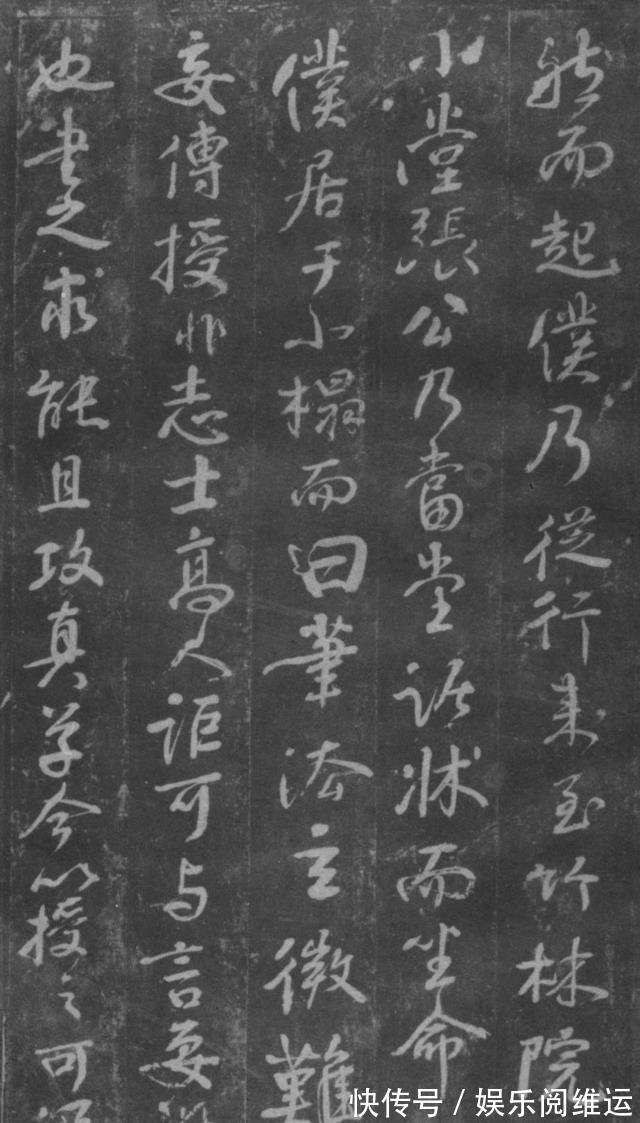 然而起僕乃從行来至竹林院
小堂張公乃當堂踞牀而坐命
僕居于小榻而曰筆法玄微難
妄傳授非志士高人詎可与言要
也書之求能且攻真草今以授之可
快传号/娱乐阅维运